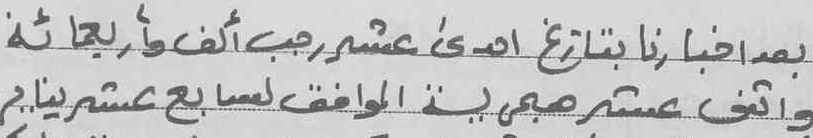 بعد اخبارنا بتاريخ احدى عشر رجب ألف وأربعمائة
واثنى عشر هجرية الموافق لسابع عشر يناير